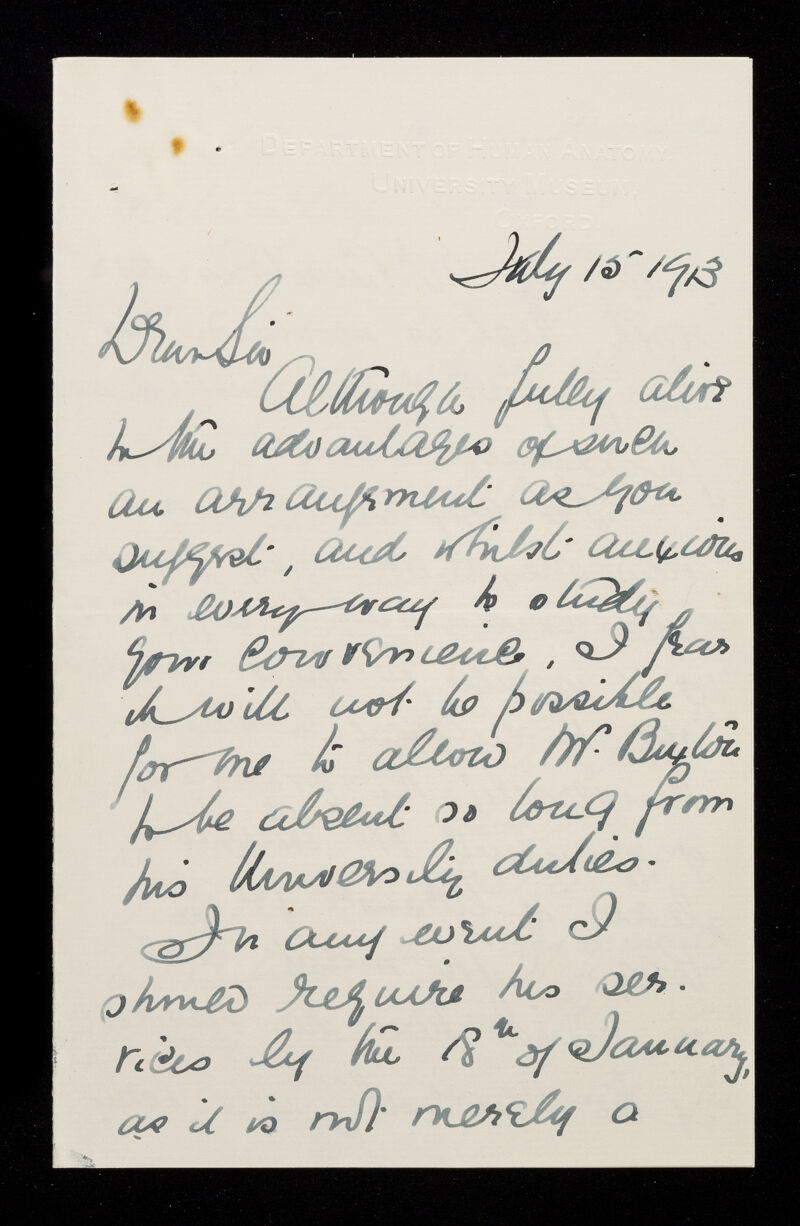 DEPARTMENT OF HUMAN ANATOMY,
UNIVERSITY MUSEUM,
OXFORD.
July 15 1913
Dear Sir
Although fully alive
to the advantages of such
an arrangement as you
suggest, and whilst anxious
in every way to study
your convenience, I fear
it will not be possible
for me to allow Mr. Buxton
to be absent so long from
his University duties.
In any event I
should require his ser-
vices by the 18th of January,
as it is not merely a